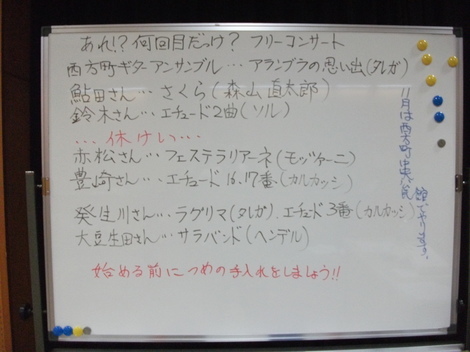 あれ!? 何回目だっけ? フリーコンサート
西方町ギターアンサンブル… アランブラの思い出(タレガ)
鮎田さん… さくら(森山直太郎)
鈴木さん… エチュード2曲(ソル)
… 休けい…
赤松さん… フェステラリアーネ(モッツァーニ)
豊崎さん… エチュード16.17番(カルカッシ)
癸生川さん… ラグリマ(タレガ).エチュード3番(カルカッシ)
大豆生田さん… サラバンド(ヘンデル)
始める前につめの手入れをしましょう!!
11月は